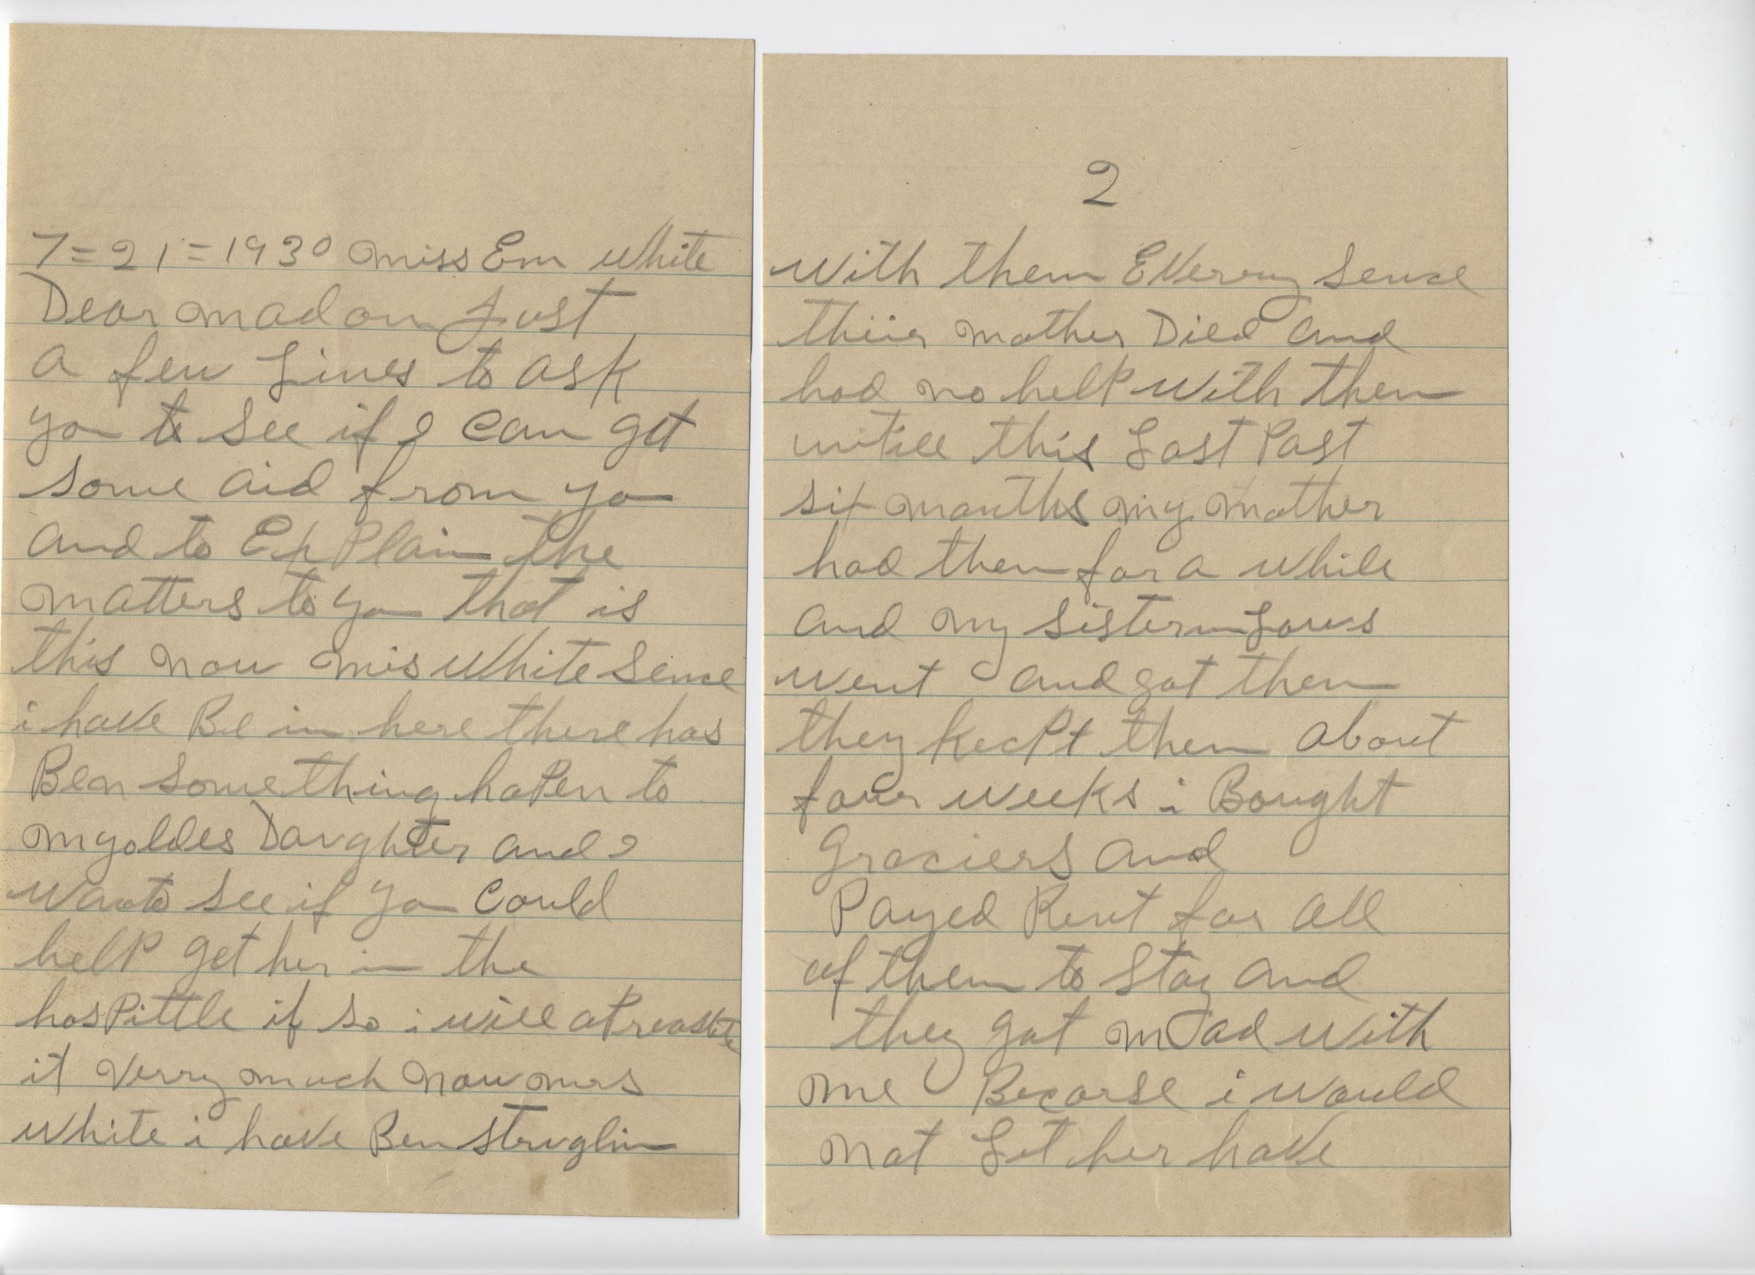 7=21=1930 miss Em White
Dear madam Just
a few Lines to ask
you to see if I can get
some aid from you
and to ExPlain the
matters to you that is
this now mis White sence
i have Be in here there has
Bean something haPen to
my oldes Daughter and I
wanto see if you could
helP get her in the
hosPittle if so i will
it verry much now mrs
White i have Ben struglin
2
with them EVerry sence
thier mother Died and
had no helP with them
untill this Last Past
six months my mother
had them for a while
and my sister in Laws
went and got them
they kecPt them about
four weeks i Bought
graciers and
Payed Rent for all
of them to stay and
they got mad with
me Becarse i would
not Let her haVe